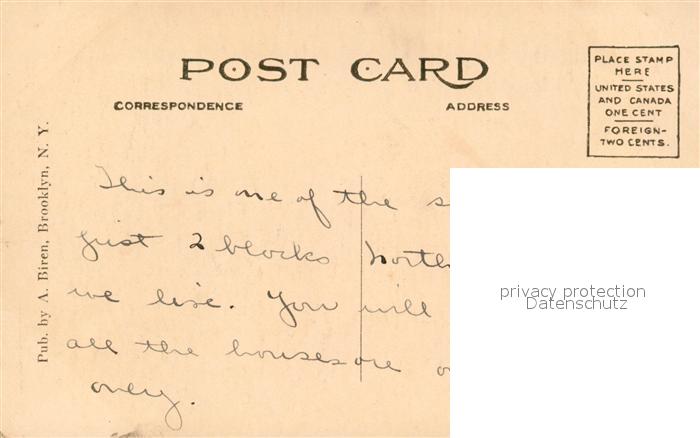 POST CARD
CORRESPONDENCE
ADDRESS
PLACE STAMP
HERE
UNITED STATES
AND CANADA
ONE CENT
FOREIGN-
TWO CENTS.
Pub. by A. Biren, Brooklyn, N. Y.
This is one of the s
just 2 blocks north
we live. You will
all the houses are o
only.
privacy protection
Datenschutz